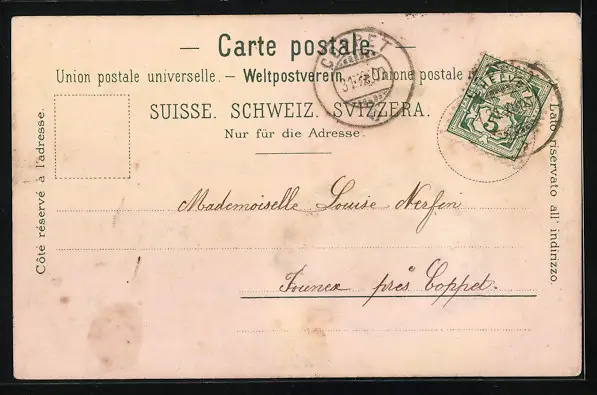 — Carte postale. —
Union postale universelle. — Weltpostverein. — Unione postale
SUISSE. SCHWEIZ. SVIZZERA.
Nur für die Adresse.
Côté réservé à l'adresse.
Lato riservato all' indirizzo.
COPPET
5
Mademoiselle Louise Nerfin
Founex près Coppet.